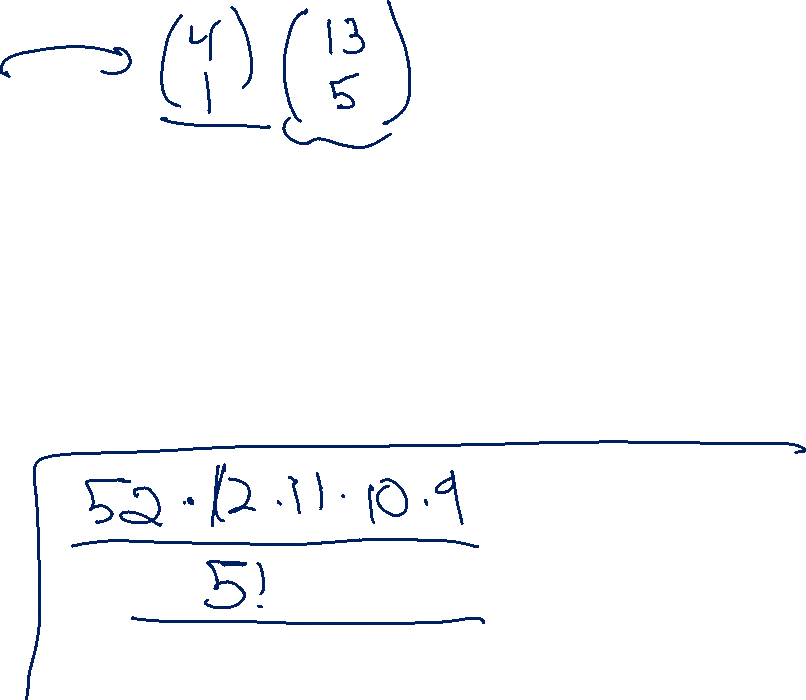 (4 1) (13 5)
52 · 12 · 11 · 10 · 9
5!